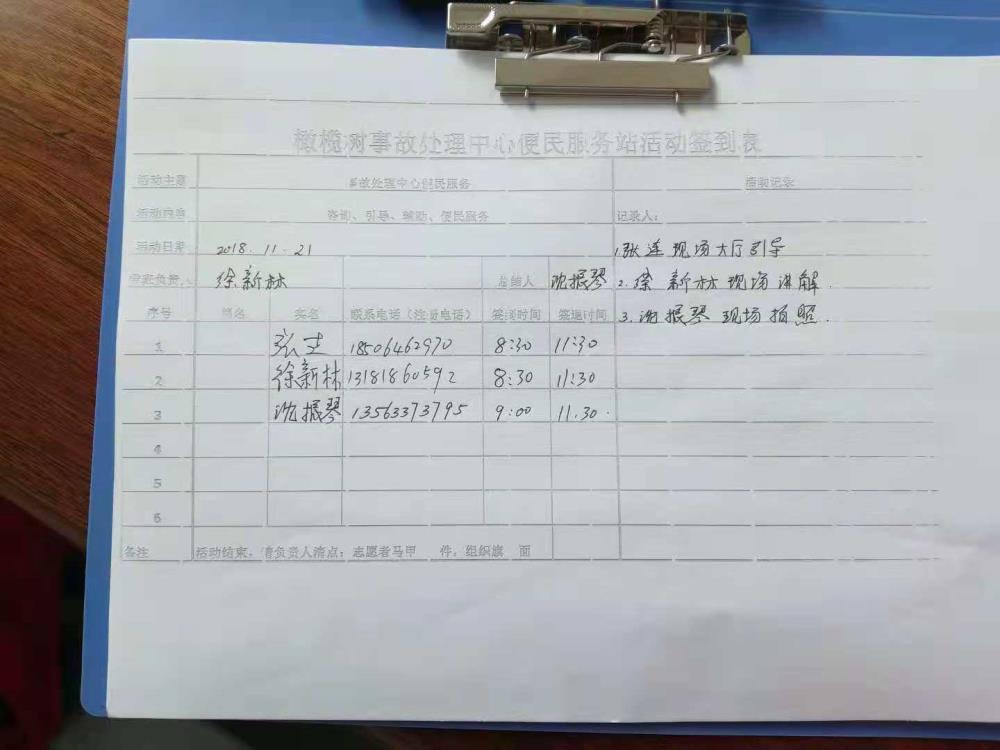 橄榄树事故处理中心便民服务站活动签到表
活动主题 事故处理中心便民服务 活动记录
活动内容 咨询、引导、辅助、便民服务 记录人：
活动日期 2018.11.21 1.张莲现场大厅引导
带班负责人 徐新林 总结人 沈振琴 2.徐新林现场讲解.
序号 签名 实名 联系电话（注册电话） 签到时间 签退时间 3.谢振琴现场拍照.
1 张 18506462970 8:30 11:30
2 徐新林 13181860592 8:30 11:30
3 沈振琴 13563373795 9:00 11.30.
4
5
6
备注 活动结束，请负责人清点：志愿者马甲 件，组织旗 面